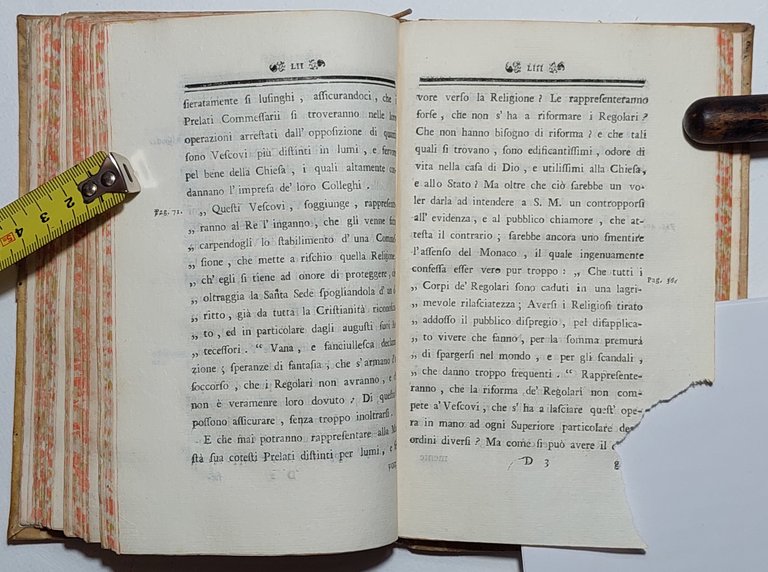 LII
fieramente si lusinghi, assicurandoci, che i
Prelati Commessarii si troveranno nelle loro
operazioni arrestati dall' opposizione di quanti
sono Vescovi più distinti in lumi, e fervore
pel bene della Chiesa, i quali altamente con
dannano l' impresa de' loro Colleghi.
Pag. 72.
„ Questi Vescovi, soggiunge, rappresente
„ ranno al Re l' inganno, che gli venne fatto
„ carpendogli lo stabilimento d' una Commes
„ sione, che mette a rischio quella Religione
„ ch' egli si tiene ad onore di proteggere, ed
„ oltraggia la Santa Sede spogliandola d' un di
„ ritto, già da tutta la Cristianità riconosciu
„ to, ed in particolare dagli augusti suoi An
„ tecessori. “ Vana, e fanciullesca declama
zione; speranze di fantasia, che s' armano
soccorso, che i Regolari non avranno, e che
non è veramenre loro dovuto? Di questo
possono assicurare, senza troppo inoltrarsi.
E che mai potranno rappresentare alla Mae
stà sua cotesti Prelati distinti per lumi, e fer
D 2
vore
LIII
vore verso la Religione? Le rappresenteranno
forse, che non s' ha a riformare i Regolari?
Che non hanno bisogno di riforma? e che tali
quali si trovano, sono edificantissimi, odore di
vita nella casa di Dio, e utilissimi alla Chiesa,
e allo Stato? Ma oltre che ciò sarebbe un vo-
ler darla ad intendere a S. M. un contropporsi
all' evidenza, e al pubblico chiamore, che at-
testa il contrario; sarebbe ancora uno smentire
l' assenso del Monaco, il quale ingenuamente
confessa esser vero pur troppo: „ Che tutti i
Pag. 56.
„ Corpi de' Regolari sono caduti in una lagri-
„ mevole rilasciatezza; Aversi i Religiosi tirato
„ addosso il pubblico dispregio, pel disapplica-
„ to vivere che fanno, per la somma premurà
„ di spargersi nel mondo, e per gli scandali,
„ che danno troppo frequenti. “ Rappresente-
ranno, che la riforma de' Regolari non com
pete a' Vescovi, che s' ha a lasciare quest' ope-
ra in mano ad ogni Superiore particolare de
ordini diversi? Ma come si può avere il
D 3